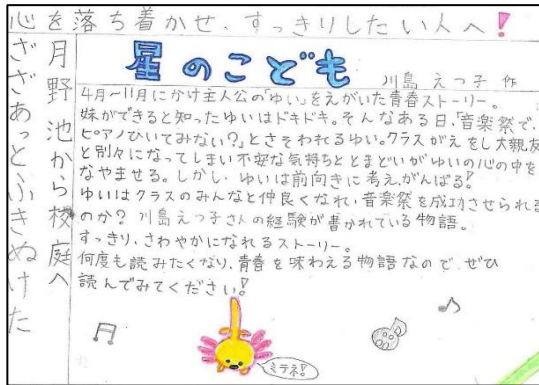 心を落ち着かせ、すっきりしたい人へ!
月野池から校庭へ
ざざあっとふきぬけた
星のこども
川島えつ子 作
4月~11月にかけ主人公の「ゆい」をえがいた青春ストーリー。
妹ができると知ったゆいはドキドキ。そんなある日、「音楽祭で、
ピアノひいてみない?」とさそわれるゆい。クラスがえをし大親友
と別々になってしまい不安な気持ちととまどいがゆいの心の中を
なやませる。しかし、ゆいは前向きに考え、がんばる!
ゆいはクラスのみんなと仲良くなれ、音楽祭を成功させられる
のか? 川島えつ子さんの経験が書かれている物語。
すっきり、さわやかになれるストーリー。
何度も読みたくなり、青春を味わえる物語なので、ぜひ
読んでみてください!
ミテネ!